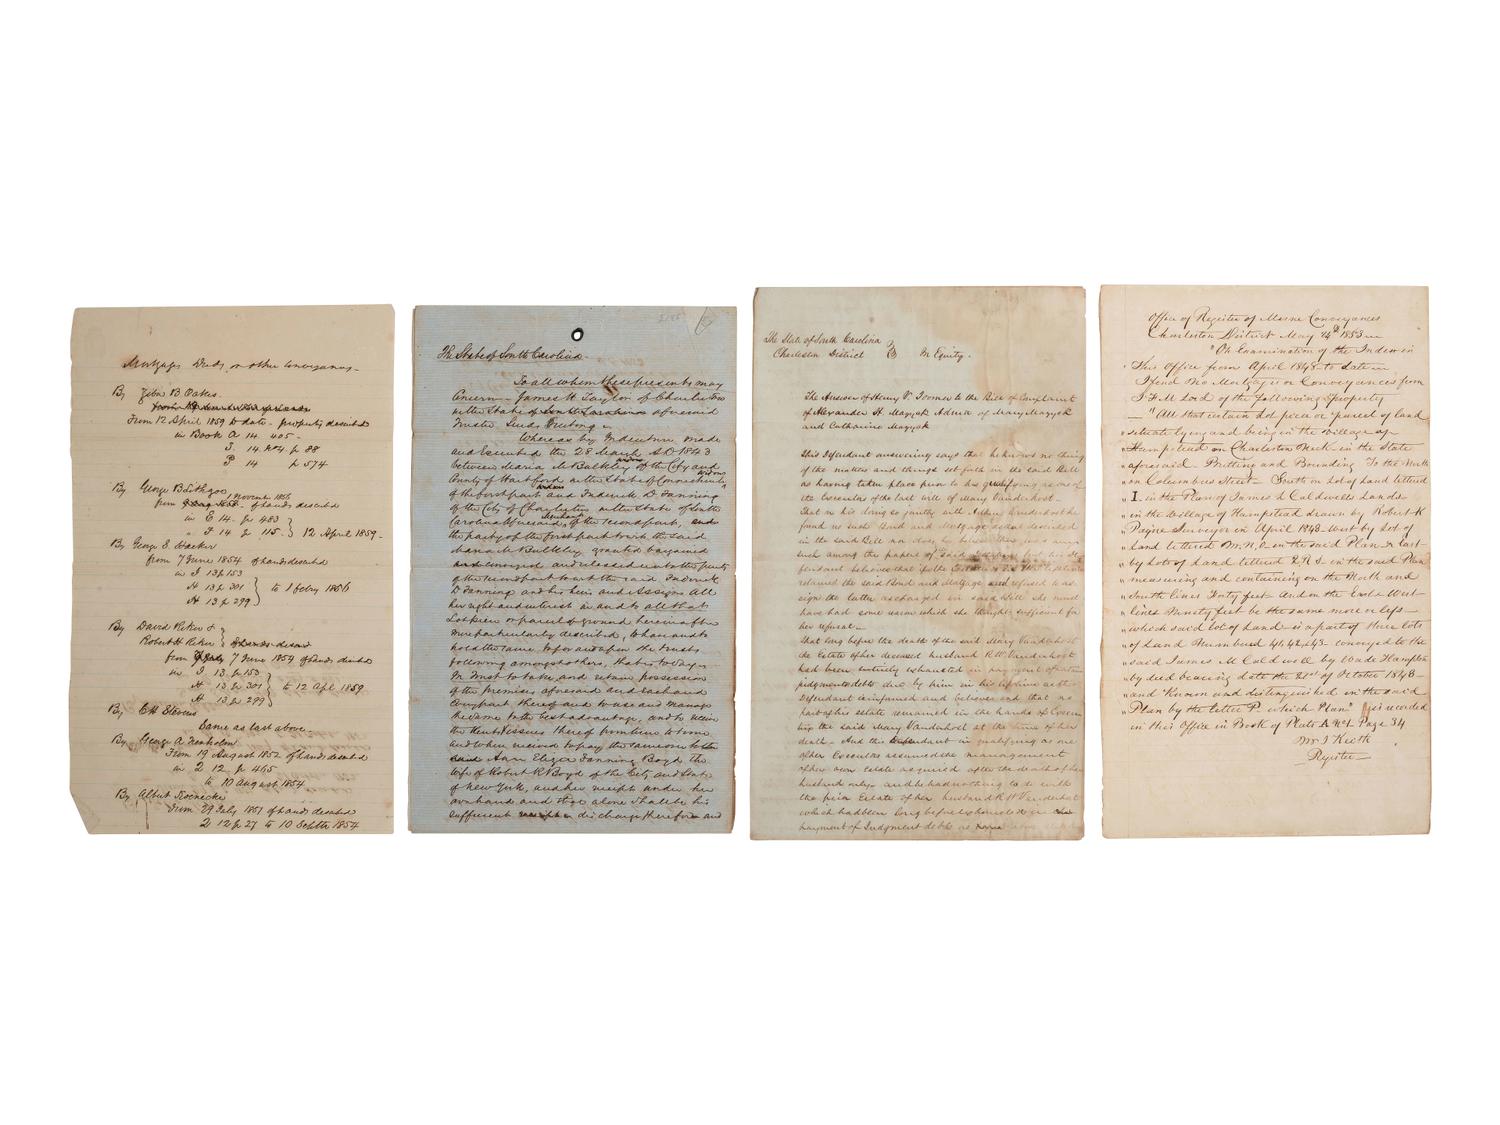 Mortgages Deeds or other Conveyances
By Ziba B Oakes
From 12 April 1859 to date - property described
in Book A 14 405
S. 14 No 4 p 88
P 14 p 574
By George B Lithgoo
1 November 1856
from of lands described
in E 14 p 483
" F 14 p 115 12 April 1859
By George S. Hacker
from 7 June 1854 of lands described
in I 13 p 153
H 13 p 301 to 1 Febry 1856
H 13 p 299
By David Riker &
Robert H Riker
from 7 June 1854 of lands described
in I 13 p 153
H 13 p 301 to 12 Apl 1859
H 13 p 299
By E H Stevens
Same as last above
By George A Trenholm
From 19 August 1852 of lands described
in Z 12 p 465
to 10 August 1854
By Albert
From 29 July 1851 of lands described
Z 12 p 27 to 10 Septr 1854
The State of South Carolina
To all whom these presents may
Concern James H Taylor of Charleston
in the State of South Carolina aforesaid
Trustee Sends Greeting
Whereas by Indenture made
and executed the 28 March A.D 1843
between Maria M Bulkley widow of the City and
County of Hartford in the State of Connecticut
of the first part and Frederick D. Fanning
of the City of Charleston in the State of South
Carolina aforesaid, Merchant of the second part, 
the party of the first part the said
Maria M Bulkley granted bargained
and released unto the party
of the second part the said Frederick
D Fanning and his heirs and Assigns All
her right and interest in and to all that
Lot piece or parcel of ground hereinafter
more particularly described, to have and to
hold the same to for and upon the trusts
following amongst others, that is to say
In Trust to take and retain possession
of the premises aforesaid and each and
every part thereof and to use and manage
the same to the best advantage, and to receive
the Rents & issues thereof from time to time
and when received to pay the same over to
Ann Eliza Fanning Boyd the
wife of Robert R Boyd of the City and State
of New York, and her receipt under her
own hand and sign alone shall be his
sufficient discharge therefor and
The State of South Carolina
Charleston District In Equity.
The Answer of Henry V. Toomer to the Bill of Complaint
of Alexander H Mazyck Admor of Mary Mazyck
and Catharine Mazyck
This Defendant answering says that he knows nothing
of the matters and things set forth in the said Bill
as having taken place prior to his qualifying as one of
the Executors of the last will of Mary Vanderhorst
That on his doing so jointly with Arthur Vanderhorst he
found no such Bond and Mortgage as that described
in the said Bill nor does he believe there was any
such among the papers of Said
pendant believes that
retained the said Bond and Mortgage and refused to as
sign the latter as charged in said Bill she must
have had some reason which she thought sufficient for
her refusal
That long before the death of the said Mary Vanderhorst
the Estate of her deceased husband R W Vanderhorst
had been entirely exhausted in payment of certain
judgments debts due by him in his lifetime as this
Defendant is informed and believes and that no
part of his estate remained in the hands of Execu
trix the said Mary Vanderhorst at the time of her
death - And this Defendant in qualifying as one
of her Executors assumed the management
of her own Estate acquired after the death of her
husband only and he had nothing to do with
the prior Estate of her husband R W Vanderhorst
which had been long before exhausted in
payment of Judgment debts as
Office of Register of Mesne Conveyances
Charleston District May 24th 1853
"On Examination of the Index in
This Office from April 1848 to date
I find No Mortgages or Conveyances from
J. F. M. Lord of the following Property
"All that certain Lot piece or parcel of land
" situate lying and being in the Village of
" Hampstead on Charleston Neck in the State
" aforesaid - Butting and Bounding To the North
" on Columbus Street - South on Lot of Land lettered
" I. in the Plan of James M Caldwells Lands
" in the Village of Hampstead drawn by Robert K
" Payne Surveyor in April 1848 - West by Lot of
" Land lettered M. N, O in the said Plan & East
" by Lots of Land lettered Q R S in the said Plan
" measuring and containing on the North and
" South lines Forty feet And on the East & West
" lines Ninety feet be the same more or less
" which said lot of Land is a part of three Lots
" of Land Numbered 41, 42, & 43 conveyed to the
" said James M Caldwell by Wade Hampton
" by deed bearing date the 21st of October 1848
" and Known and distinguished in the said
" Plan by the letter P which Plan is recorded
in this Office in Book of Plats A No 1. Page 34
Mr J Keith
Register